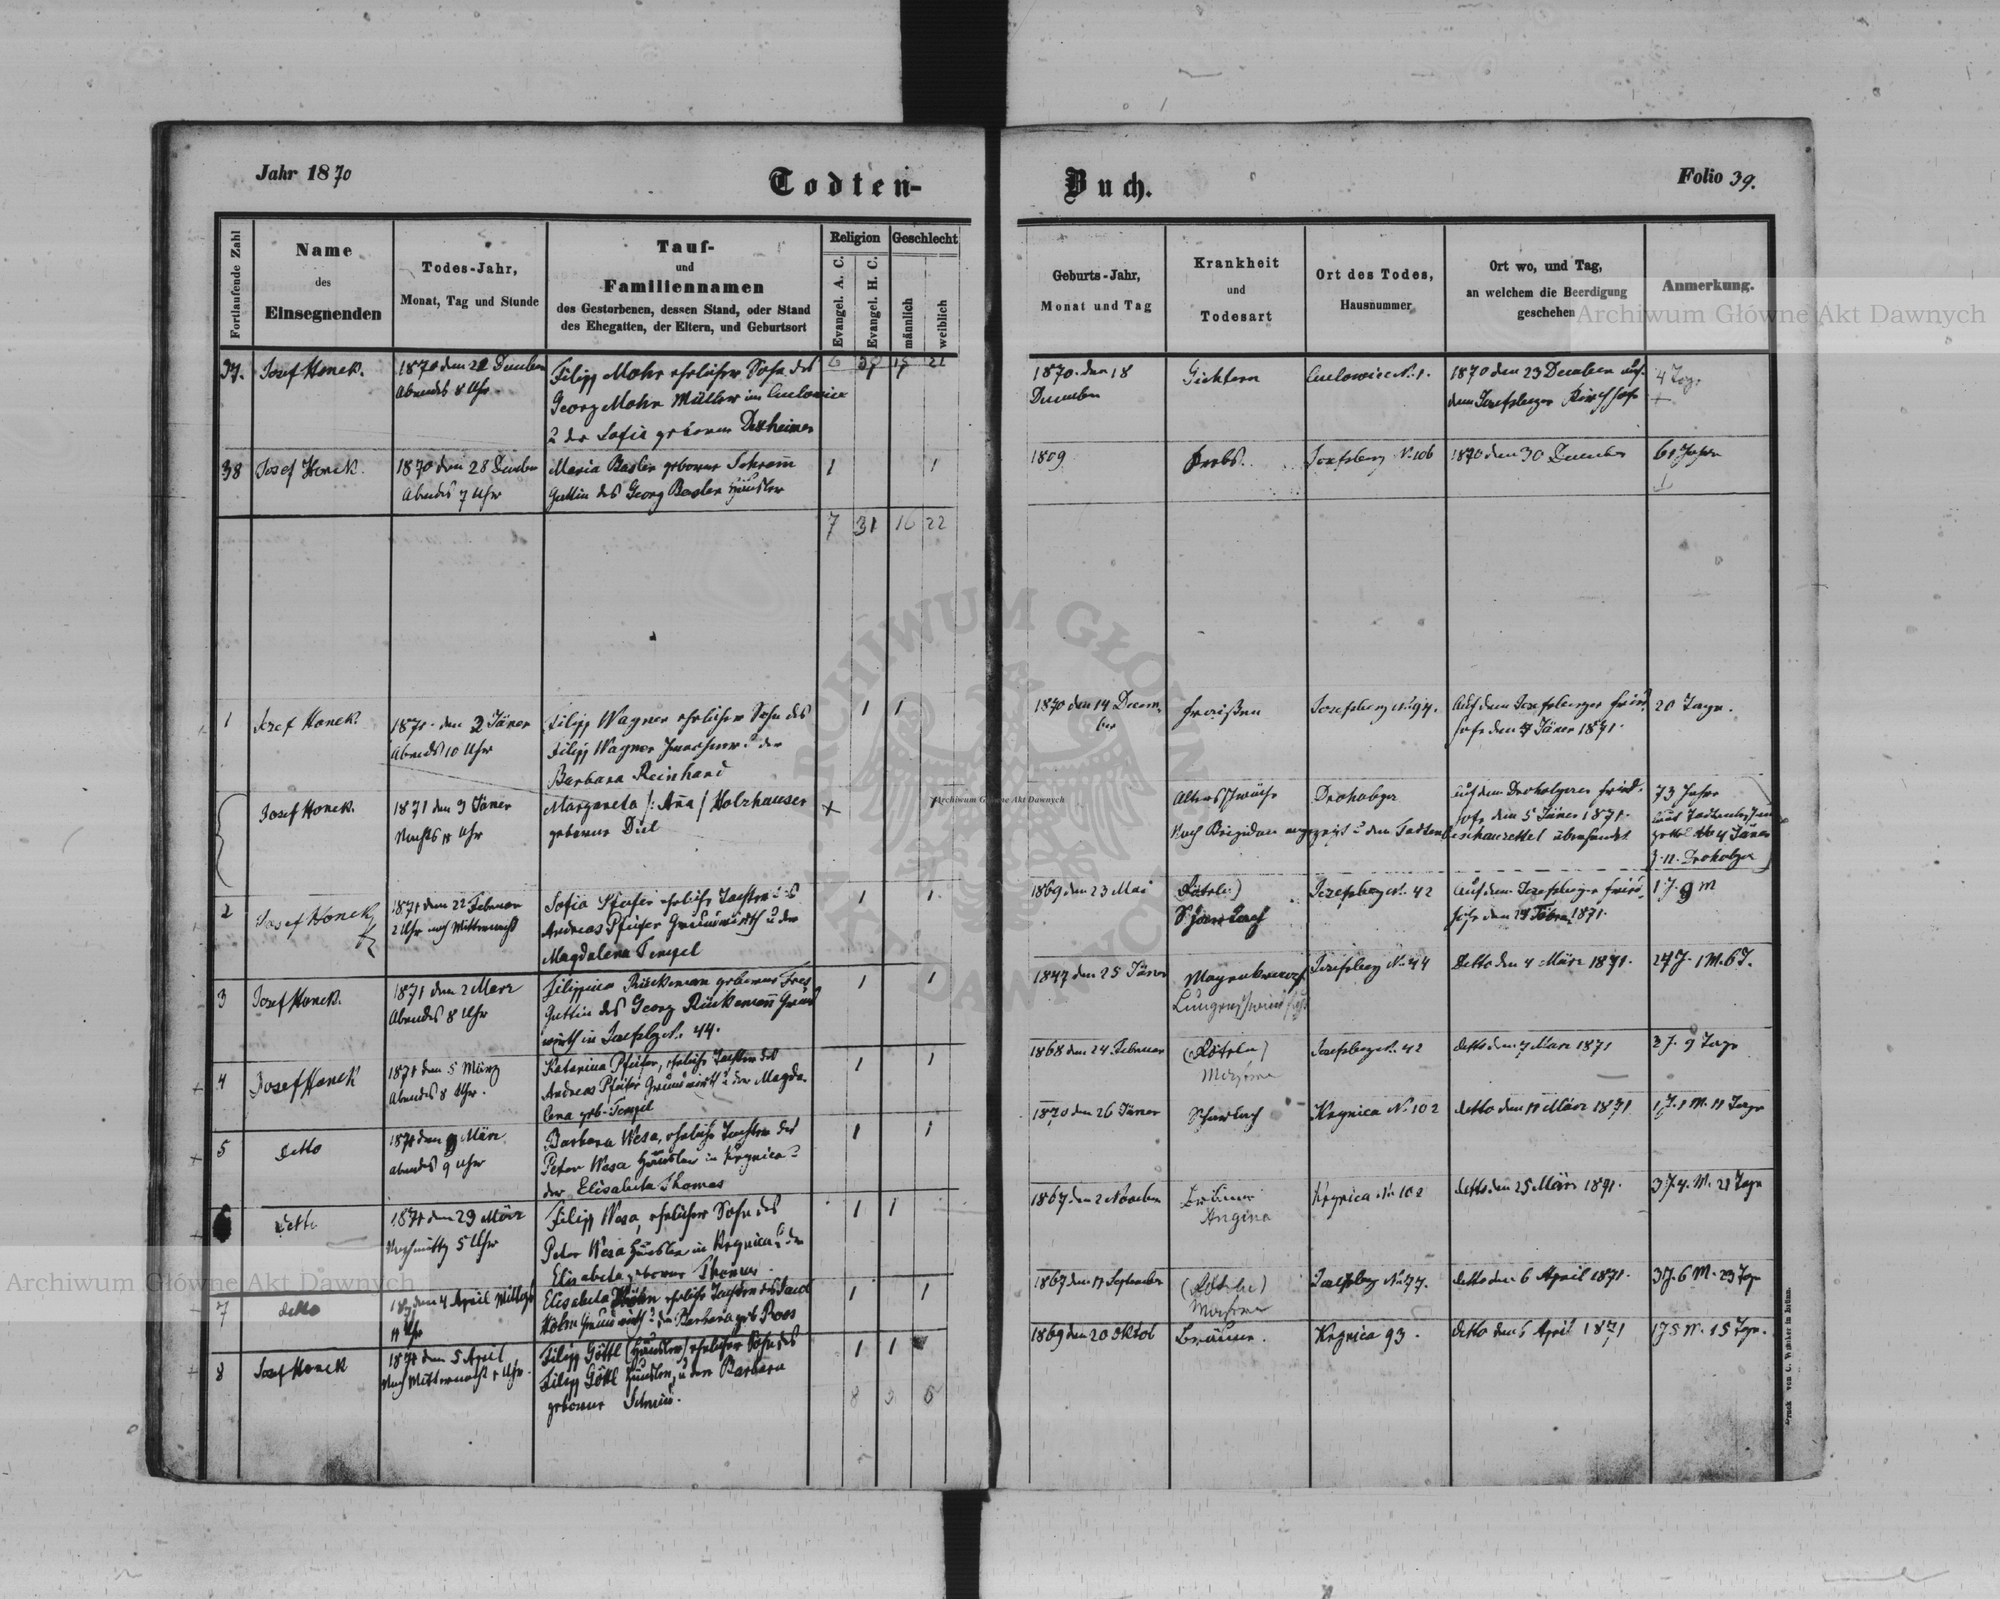 Jahr 1870
Todten-
Buch.
Folio 39.
Fortlaufende Zahl
Name
des
Einsegnenden
Todes-Jahr,
Monat, Tag und Stunde
Tauf-
und
Familiennamen
des Gestorbenen, dessen Stand, oder Stand
des Ehegatten, der Eltern, und Geburtsort
Religion
Evangel. A. C.
Evangel. H. C.
Geschlecht
männlich
weiblich
Geburts-Jahr,
Monat und Tag
Krankheit
und
Todesart
Ort des Todes,
Hausnummer
Ort wo, und Tag,
an welchem die Beerdigung
geschehen
Anmerkung.
37. Josef Honek.
1870 den Dezember
Abends 8 Uhr
Filipp Mohr ehelicher Sohn des
Georg Mohr Müller in
u der Sofie geborene
1870 den 18
Dezember
1870 den 23 Dezember auf
dem Josefsberger Kirchhofe
4 Tage
38 Josef Honek.
1870 den 28
Abends 7 Uhr
Maria Basler geborene Schramm
Gattin des Georg Basler Häusler
1 1
1809
Krebs.
Josefsberg N. 106
1870 den 30 Dezember
61 Jahre
7 31 16 22
1 Josef Honek.
1871 den 2 Jäner
Abends 10 Uhr
Filipp Wagner ehelicher Sohn des
Filipp Wagner u der
Barbara Reinhard
1 1
1870 den 14 Decem-
ber
Fraißen
Josefsberg
Auf dem Josefsberger Fried-
hofe den Jäner 1871.
20 Tage.
Josef Honek.
1871 den 3 Jäner
Nachts 11 Uhr
Margareta /: Aña / Holzhauser
geborene Diel
+
Altersschwäche
Drohobycz
auf dem Drohobyczer Fried-
hofe den 5 Jäner 1871.
73 Jahre
Nach Brigidau angezeigt u den Todtenbeschauzettel übersendet
4 Jäner
Drohobycz
2 Josef Honek
1871 den 22 Februar
2 Uhr nach Mitternacht
Sofia Pfeifer eheliche Tochter des
Andreas Pfeifer Grundwirth u der
Magdalena Tempel
1 1
1869 den 23 Mai
(Röteln)
Scharlach
Josefsberg N. 42
auf dem Josefsberger Fried-
hofe den 1871.
1 J. 9 M
3 Josef Honek.
1871 den 2 März
Abends 8 Uhr
Filippina Rückemann geborene
Gattin des Georg Rückemann Grund
wirth in Josefsbg N. 44.
1 1
1847 den 25 Jäner
Magenkrampf
Lungenschwindsucht
Josefsberg N. 44
Detto den 4 März 1871.
24 J. 1 M. 6 T.
4 Josef Honek
1871 den 5 März
Abends 8 Uhr.
Katarina Pfeifer, eheliche Tochter des
Andreas Pfeifer Grundwirth u der Magda-
lena geb. Tempel
1 1
1868 den 24 Februar
(Röteln)
Josefsberg N. 42
detto den 7 März 1871
3 J. 9 Tage
5 detto
1871 den 9 März
abends 9 Uhr
Barbara Wesa, eheliche Tochter des
Peter Wesa Häusler in Krynica u
der Elisabeta Thomas
1 1
1870 den 26 Jäner
Scharlach
Krynica N. 102
detto den 11 März 1871
1 J. 1 M. 11 Tage
6 detto
1871 den 23 März
Nachmittg 5 Uhr
Filipp Wesa, ehelicher Sohn des
Peter Wesa Häusler in Krynica u der
Elisabeta geborene Thomas.
1 1
1867 den 2 November
Bräune
Angina
Krynica N. 102
detto den 25 März 1871.
3 J. 4. M. 21 Tage
7 detto
1871 den 4 April Mittags
11 Uhr
Elisabeta Höhn eheliche Tochter des Jacob
Höhn Grundwirth u der Barbara geb Roos
1 1
1867 den 11 September
(Röteln)
Josefsberg N. 77.
detto den 6 April 1871.
3 J. 6 M. 23 Tage
8 Josef Honek
1871 den 5 April
Nach Mitternacht 1 Uhr
Filipp Göttl (Häusler) ehelicher Sohn des
Filipp Göttl Häusler, u der Barbara
geborene Schmid.
1 1
8 3 5
1869 den 20 Oktob
Bräune.
Krynica 93.
detto den 6 April 1871
1 J 5 M. 15 Tage.
Druck von C. Winiker in Brünn.
Archiwum Główne Akt Dawnych
Archiwum Główne Akt Dawnych
Archiwum Główne Akt Dawnych
ARCHIWUM GŁÓWNE AKT DAWNYCH